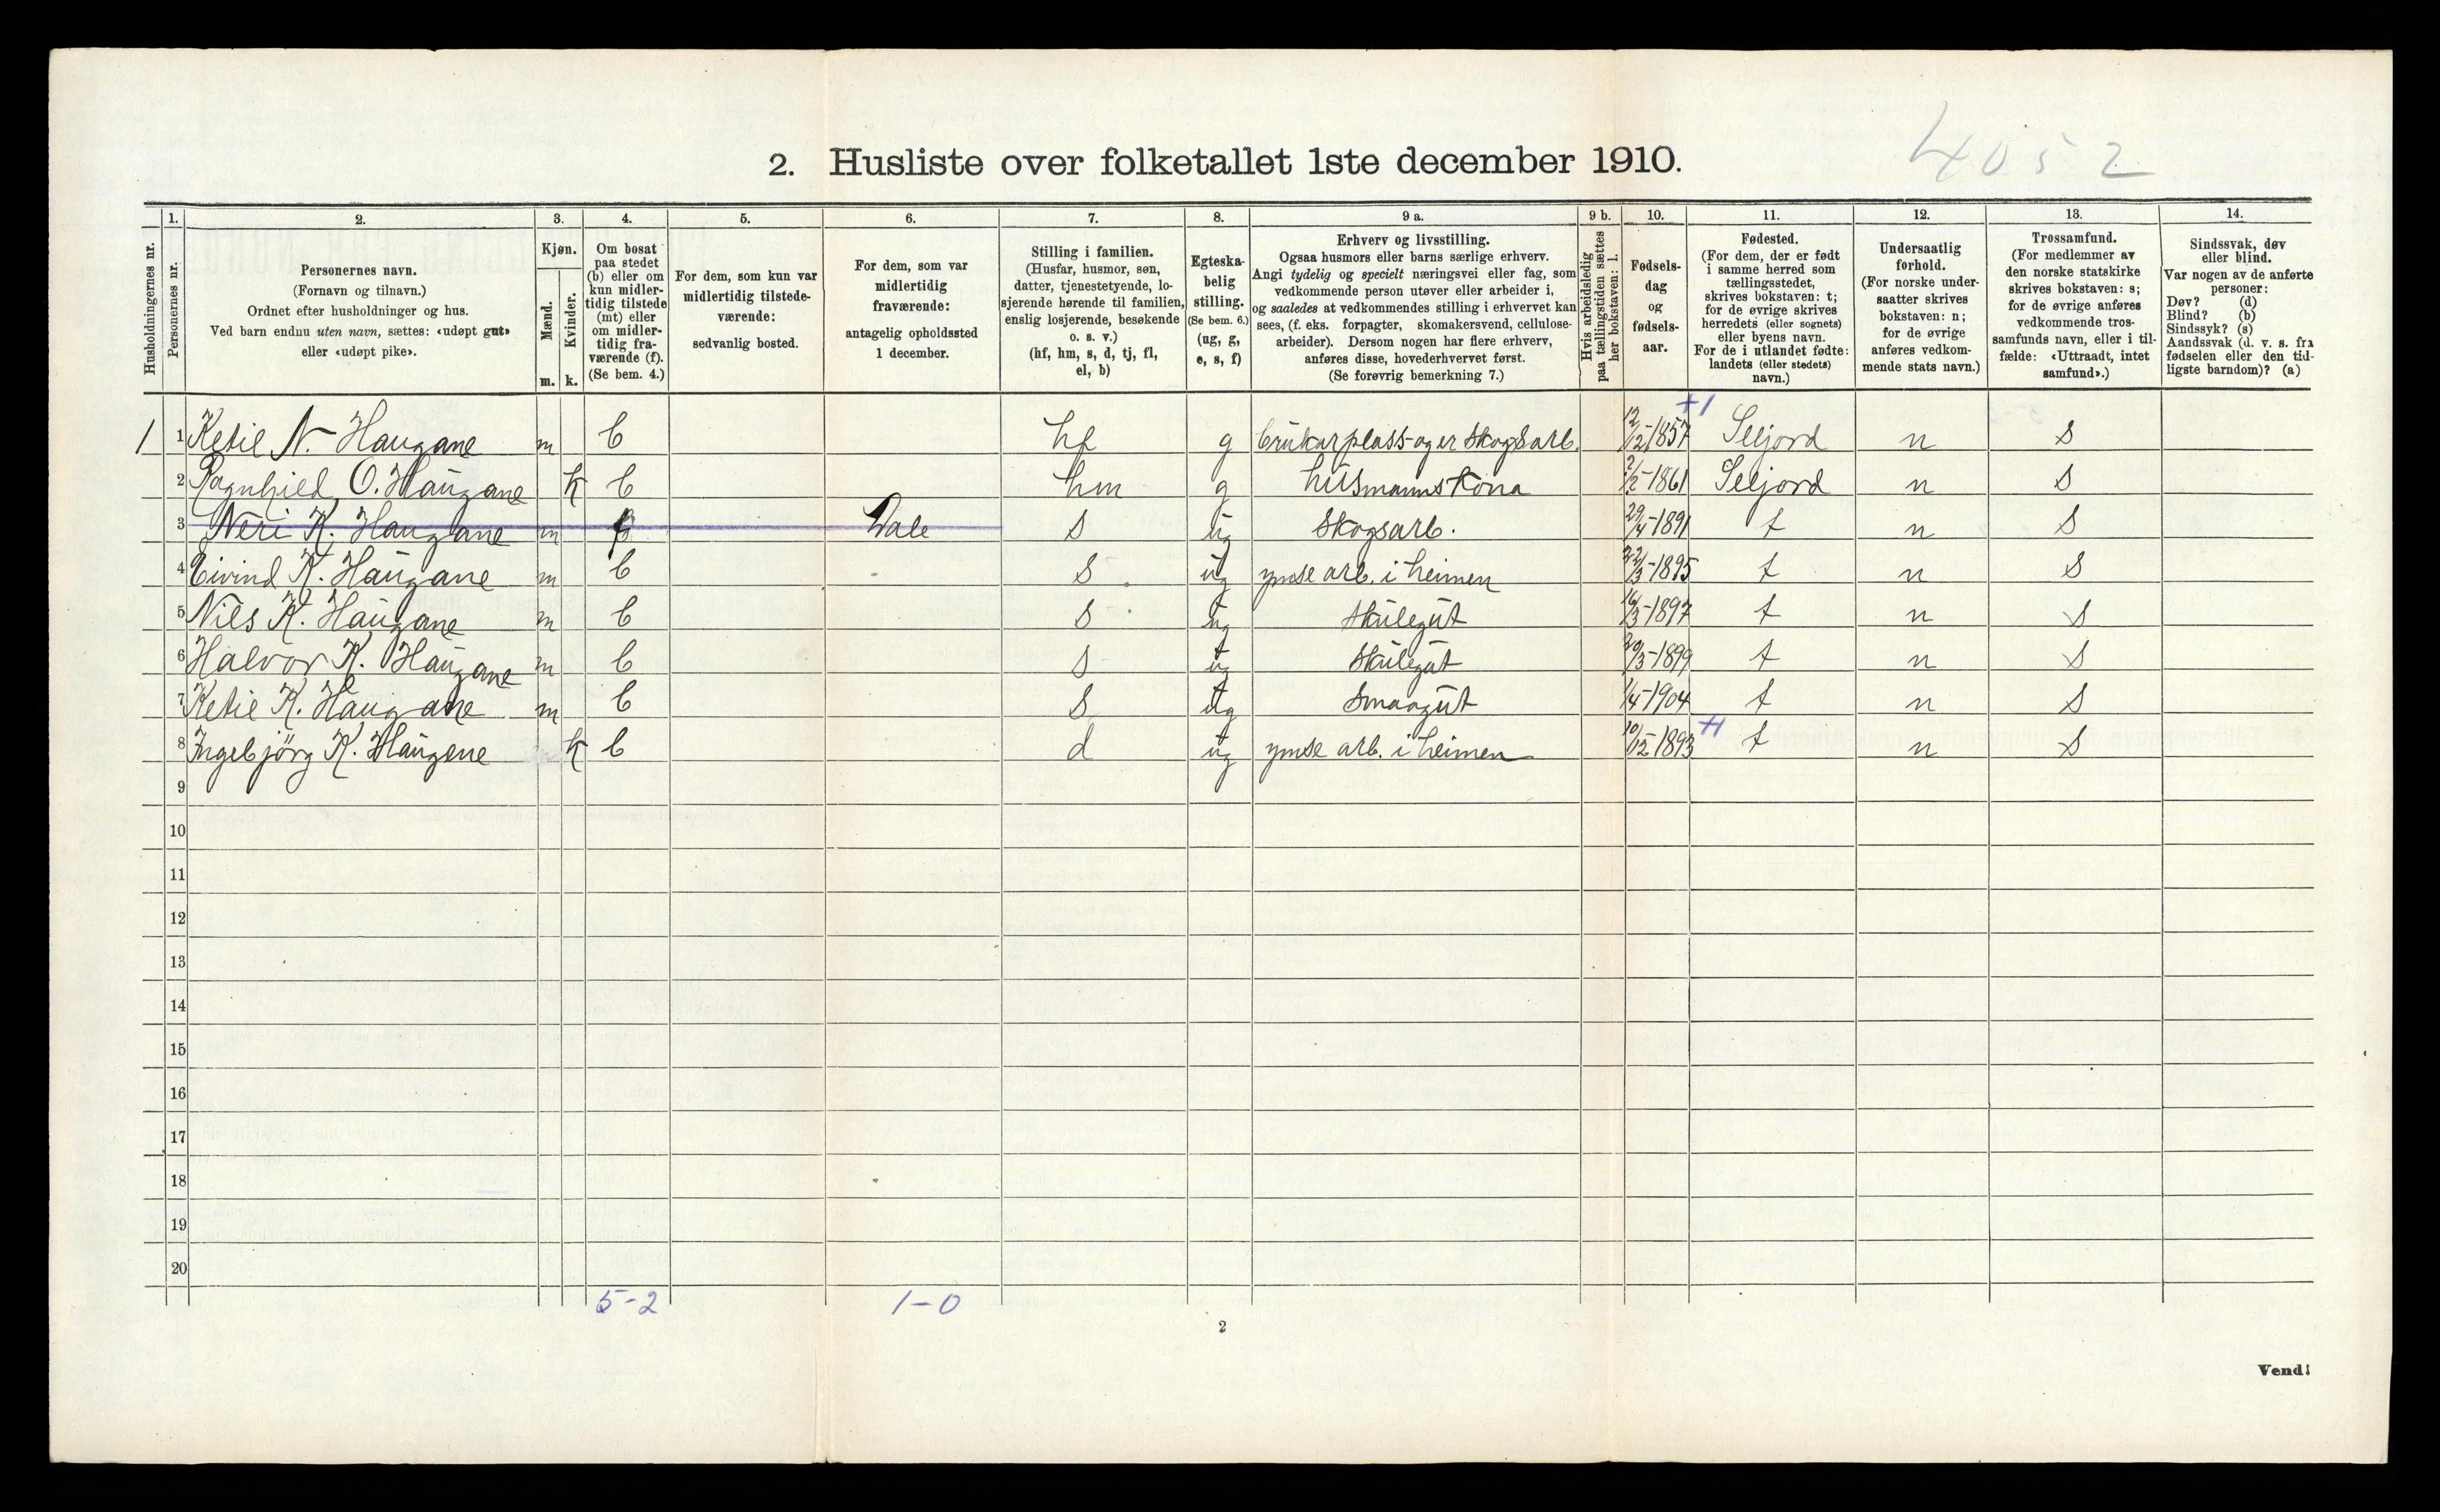 4052
2. Husliste over folketallet 1ste december 1910.
1. 2. 3. 4. 5. 6. 7. 8. 9 a. 9 b. 10. 11. 12. 13. 14.
Husholdningernes nr.
Personernes nr.
Personernes navn.
(Fornavn og tilnavn.)
Ordnet efter husholdninger og hus.
Ved barn endnu uten navn, sættes: «udøpt gut»
eller «udøpt pike».
Kjøn.
Mænd.
Kvinder.
m. k.
Om bosat
paa stedet
(b) eller om
kun midler-
tidig tilstede
(mt) eller
om midler-
tidig fra-
værende (f).
(Se bem. 4.)
For dem, som kun var
midlertidig tilstede-
værende:
sedvanlig bosted.
For dem, som var
midlertidig
fraværende:
antagelig opholdssted
1 december.
Stilling i familien.
(Husfar, husmor, søn,
datter, tjenestetyende, lo-
sjerende hørende til familien,
enslig losjerende, besøkende
o. s. v.)
(hf, hm, s, d, tj, fl,
el, b)
Egteska-
belig
stilling.
(Se bem. 6.)
(ug, g,
e, s, f)
Erhverv og livsstilling.
Ogsaa husmors eller barns særlige erhverv.
Angi tydelig og specielt næringsvei eller fag, som
vedkommende person utøver eller arbeider i,
og saaledes at vedkommendes stilling i erhvervet kan
sees, (f. eks. forpagter, skomakersvend, cellulose-
arbeider). Dersom nogen har flere erhverv,
anføres disse, hovederhvervet først.
(Se forøvrig bemerkning 7.)
Hvis arbeidsledig
paa tællingstiden sættes
her bokstaven: l.
Fødsels-
dag
og
fødsels-
aar.
Fødested.
(For dem, der er født
i samme herred som
tællingsstedet,
skrives bokstaven: t;
for de øvrige skrives
herredets (eller sognets)
eller byens navn.
For de i utlandet fødte:
landets (eller stedets)
navn.)
Undersaatlig
forhold.
(For norske under-
saatter skrives
bokstaven: n;
for de øvrige
anføres vedkom-
mende stats navn.)
Trossamfund.
(For medlemmer av
den norske statskirke
skrives bokstaven: s;
for de øvrige anføres
vedkommende tros-
samfunds navn, eller i til-
fælde: «Uttraadt, intet
samfund».)
Sindssvak, døv
eller blind.
Var nogen av de anførte
personer:
Døv? (d)
Blind? (b)
Sindssyk? (s)
Aandssvak (d. v. s. fra
fødselen eller den tid-
ligste barndom)? (a)
+1
1 1 Ketil N. Haugane m b hf g brukar plass og er skogsarb. 12/12-1857 Seljord n s
2 Ragnhild O. Haugane k b hm g husmannskona 2/2-1861 Seljord n s
3 Neri K. Haugane m f Dale s ug skogsarb. 29/4-1891 t n s
4 Eivind K. Haugane m b s ug ymse arb. i heimen 22/3-1895 t n s
5 Nils K. Haugane m b s ug skulegut 16/3-1897 t n s
6 Halvor K. Haugane m b s ug skulegut 20/3-1899 t n s
7 Ketil K. Haugane m b s ug smaagut 1/4-1904 t n s
8 Ingebjörg K. Haugene k b d ug ymse arb. i heimen 10/12-1893 +1 t n s
9
10
11
12
13
14
15
16
17
18
19
20
5-2 1-0
2
Vend!